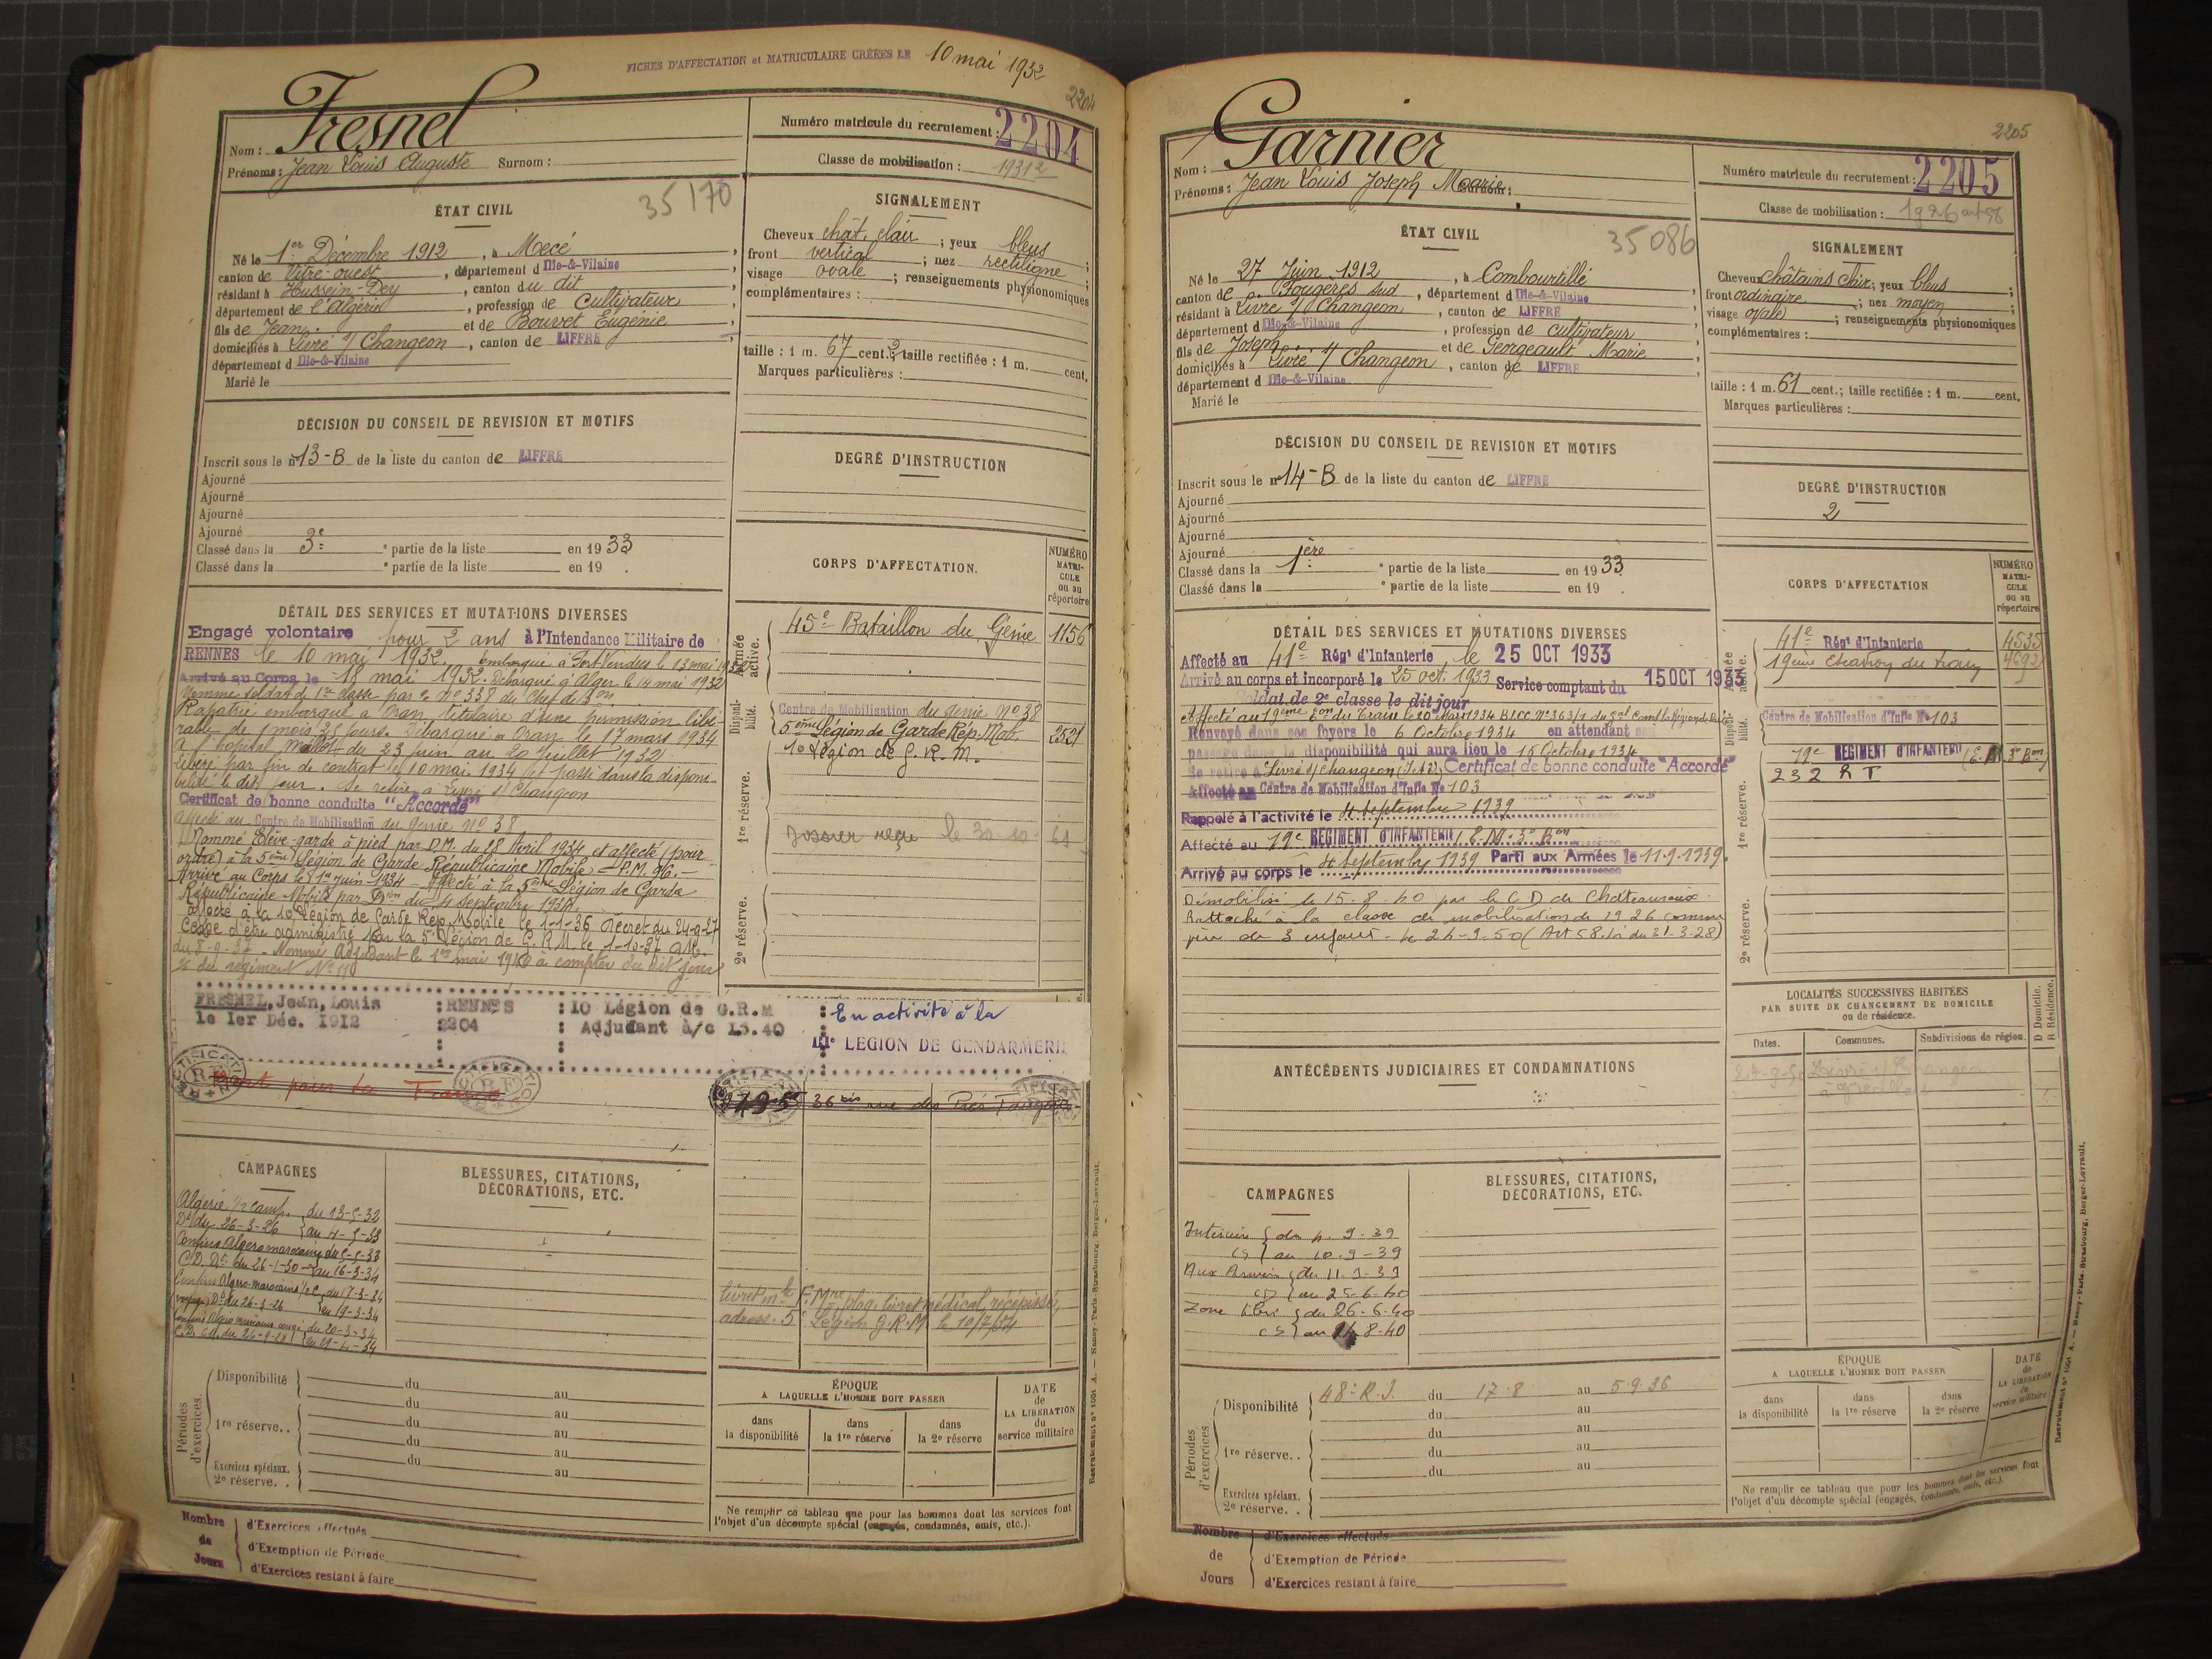 FICHES D'AFFECTATION et MATRICULAIRE CRÉÉES LE 10 mai 1932
2204
Nom : Fresnel
Prénoms : Jean Louis Auguste Surnom :
Numéro matricule du recrutement : 2204
Classe de mobilisation : 1931
35170
ÉTAT CIVIL
Né le 1er Décembre 1912, à Mecé
canton de Vitré-ouest, département d Ille-&-Vilaine
résidant à Hussein-Dey, canton du dit
département de l'Algérie, profession de Cultivateur
fils de Jean et de Bouvet Eugénie
domiciliés à Livré s/ Changeon, canton de LIFFRÉ
département d Ille-&-Vilaine
Marié le
SIGNALEMENT
Cheveux chât. clair ; yeux bleus ;
front vertical ; nez rectiligne ;
visage ovale ; renseignements physionomiques
complémentaires :
taille : 1 m. 67 cent. ; taille rectifiée : 1 m. cent.
Marques particulières :
DÉCISION DU CONSEIL DE REVISION ET MOTIFS
Inscrit sous le n° 13-B de la liste du canton de LIFFRÉ
Ajourné
Ajourné
Ajourné
Ajourné
Classé dans la 3e partie de la liste en 1933
Classé dans la e partie de la liste en 19
DEGRÉ D'INSTRUCTION
CORPS D'AFFECTATION.
NUMÉRO MATRI-CULE ou au répertoire
Armée active.
45e Bataillon du Génie 1156
Disponi-bilité.
Centre de Mobilisation du Génie N° 38
5ème Légion de Garde Rép. Mob. 2521
10 Légion de G. R. M.
1re réserve.
Dossier reçu le 30-10-61
2e réserve.
DÉTAIL DES SERVICES ET MUTATIONS DIVERSES
Engagé volontaire pour 2 ans à l'Intendance Militaire de
RENNES le 10 mai 1932. Embarqué à Port-Vendres le 13 mai 1932
Arrivé au Corps le 18 mai 1932. Débarqué à Alger le 14 mai 1932
Nommé soldat de 1re classe par o. N° 338 du Chef de Bon
Rapatrié embarqué à Oran, titulaire d'une permission libé-
rable de 1 mois 25 jours. Débarqué à Oran le 17 mars 1934
A l'hopital Maillot du 23 juin au 20 Juillet 1932
Libéré par fin de contrat le 10 mai 1934 et passé dans la disponi-
bilité le dit jour. Se retire à Livré s/ Changeon
Certificat de bonne conduite "Accordé"
Affecté au Centre de Mobilisation du Génie N° 38
Nommé Elève-garde à pied par D.M. du 28 Avril 1934 et affecté (pour
ordre) à la 5ème Légion de Garde Républicaine Mobile - P.M. 96. -
Arrivé au Corps le 1er Juin 1934 - Affecté à la 5ème Légion de Garde
Républicaine Mobile par Don du 4 septembre 1934
affecté à la 10 Légion de Garde Rép. Mobile le 1-1-36 Décret du 24-9-27
Cesse d'être administré par la 5e Légion de G.R.M. le 1-10-37
du 8-9-37 - Nommé Adjudant le 1er mai 1940 à compter du dit jour
FRESNEL, Jean, Louis :RENNES :10 Légion de G.R.M : En activité à la
le 1er Déc. 1912 2204 : Adjudant à/c 15.40 IIIe LEGION DE GENDARMERIE
Mort pour la France
36 bis rue des Prés
CAMPAGNES
Algérie 1/2 camp. du 13-5-32
Dt du 26-3-26 au 4-5-33
Confins Algéro marocains du 5-5-33
C.D. Dt du 26-1-30 au 16-3-34
Confins Algéro-marocains 1/2 C. du 17-3-34
(voyage) Dt du 26-3-26 au 19-3-34
Confins Algéro marocains congé du 20-3-34
au 29-4-34
BLESSURES, CITATIONS, DÉCORATIONS, ETC.
livret mle F. Mre, plaq. livret médical, récépissé,
adress. 5e Légion G.R.M. le 10/7/34
Périodes d'exercices
Disponibilité du au
du au
1re réserve. . du au
du au
du au
Exercices spéciaux. 2e réserve. . au
ÉPOQUE
A LAQUELLE L'HOMME DOIT PASSER
dans la disponibilité
dans la 1re réserve
dans la 2e réserve
DATE de LA LIBÉRATION du service militaire
Ne remplir ce tableau que pour les hommes dont les services font
l'objet d'un décompte spécial (engagés, condamnés, omis, etc.).
Nombre de Jours
d'Exercices effectués
d'Exemption de Période
d'Exercices restant à faire
2205
Nom : Garnier
Prénoms : Jean Louis Joseph Marie Surnom :
Numéro matricule du recrutement : 2205
Classe de mobilisation : 1926 art 58
35086
ÉTAT CIVIL
Né le 27 Juin 1912, à Combourtillé
canton de Fougères Sud, département d Ille-&-Vilaine
résidant à Livré s/ Changeon, canton de LIFFRÉ
département d Ille-&-Vilaine, profession de cultivateur
fils de Joseph et de Georgeault Marie
domiciliés à Livré s/ Changeon, canton de LIFFRÉ
département d Ille-&-Vilaine
Marié le
SIGNALEMENT
Cheveux châtains clair ; yeux bleus ;
front ordinaire ; nez moyen ;
visage ovale ; renseignements physionomiques
complémentaires :
taille : 1 m. 61 cent. ; taille rectifiée : 1 m. cent.
Marques particulières :
DÉCISION DU CONSEIL DE REVISION ET MOTIFS
Inscrit sous le n° 14-B de la liste du canton de LIFFRÉ
Ajourné
Ajourné
Ajourné
Ajourné
Classé dans la 1ère partie de la liste en 1933
Classé dans la e partie de la liste en 19
DEGRÉ D'INSTRUCTION
2
CORPS D'AFFECTATION
NUMÉRO MATRI-CULE ou au répertoire
Armée active.
41e Régt d'Infanterie 4535
19ème Escadron du Train 4692
Disponi-bilité.
Centre de Mobilisation d'Infie N° 103
19e REGIMENT D'INFANTERIE (E.M. 3e Bon)
232 R T
1re réserve.
2e réserve.
DÉTAIL DES SERVICES ET MUTATIONS DIVERSES
Affecté au 41e Régt d'Infanterie, le 25 OCT 1933
Arrivé au corps et incorporé le 25 oct. 1933 Service comptant du 15 OCT 1933
Soldat de 2e classe le dit jour
Affecté au 19ème Eon du Train le 20 Mars 1934
Renvoyé dans ses foyers le 6 Octobre 1934 en attendant son
passage dans la disponibilité qui aura lieu le 15 Octobre 1934
Se retire à Livré s/ Changeon (I et V) Certificat de bonne conduite "Accordé"
Affecté au Centre de Mobilisation d'Infie N° 103
Rappelé à l'activité le 4 septembre 1939
Affecté au 19e REGIMENT D'INFANTERIE, E.M. 3e Bon
Arrivé au corps le 4 septembre 1939 Parti aux Armées le 11.9.1939
Démobilisé le 15.8.40 par le C D de Châteauroux
Rattaché à la classe de mobilisation de 1926 comme
père de 3 enfants - le 24-9-50 (Art 58 Loi du 31-3-28)
ANTÉCÉDENTS JUDICIAIRES ET CONDAMNATIONS
LOCALITÉS SUCCESSIVES HABITÉES
PAR SUITE DE CHANGEMENT DE DOMICILE
ou de résidence.
Dates.
Communes.
Subdivisions de région.
D Domicile.
R Résidence.
Livré s/ Changeon
CAMPAGNES
Intérieur du 4.9.39
CS au 10.9-39
Aux Armées du 11.9-39
CD au 25-6-40
Zone Libre du 26-6-40
CS au 14.8-40
BLESSURES, CITATIONS, DÉCORATIONS, ETC.
Périodes d'exercices
Disponibilité 48e R.I. du 17.8 au 5.9.36
du au
1re réserve. . du au
du au
du au
Exercices spéciaux. 2e réserve. .
ÉPOQUE
A LAQUELLE L'HOMME DOIT PASSER
dans la disponibilité
dans la 1re réserve
dans la 2e réserve
DATE de LA LIBÉRATION du service militaire
Ne remplir ce tableau que pour les hommes dont les services font
l'objet d'un décompte spécial (engagés, condamnés, omis, etc.).
Nombre de Jours
d'Exercices effectués
d'Exemption de Période
d'Exercices restant à faire